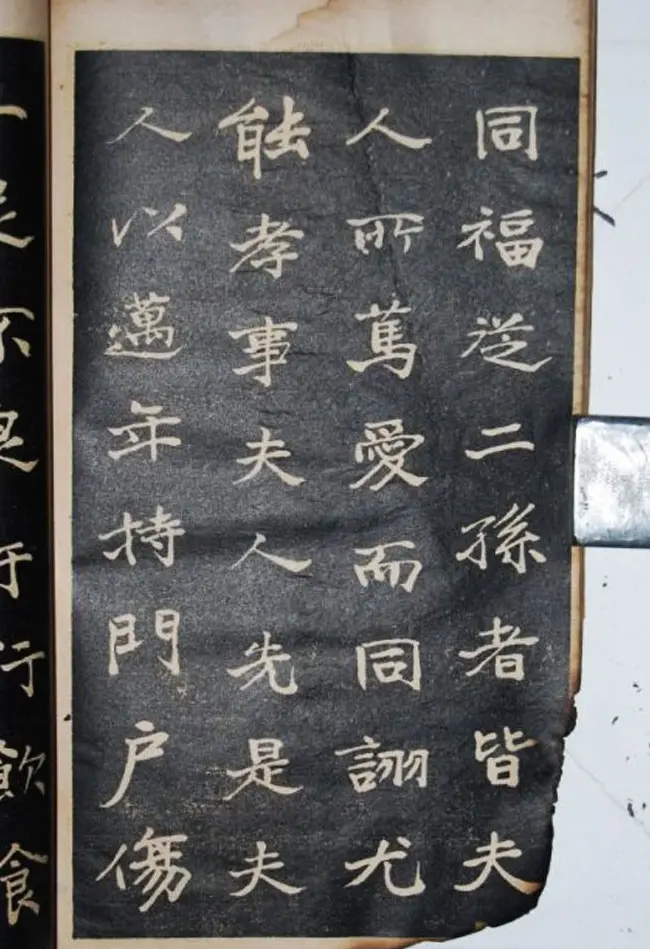 同福從二孫者皆夫
人所篤愛而同詡尤
能孝事夫人先是夫
人以邁年持門户傷
足不良于行飲食